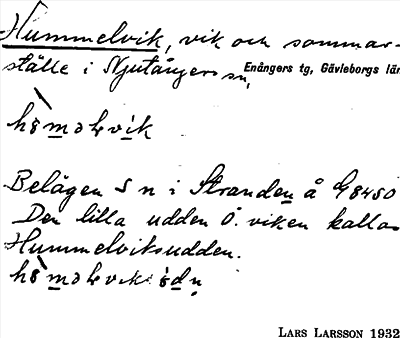 Hummelvik, vik och sommar-
ställe i Njutångers sn,
Enångers tg, Gävleborgs län
Belägen S n i Stranden å G8450
Den lilla udden Ö. viken kallas
Hummelviksudden.
LARS LARSSON 1932